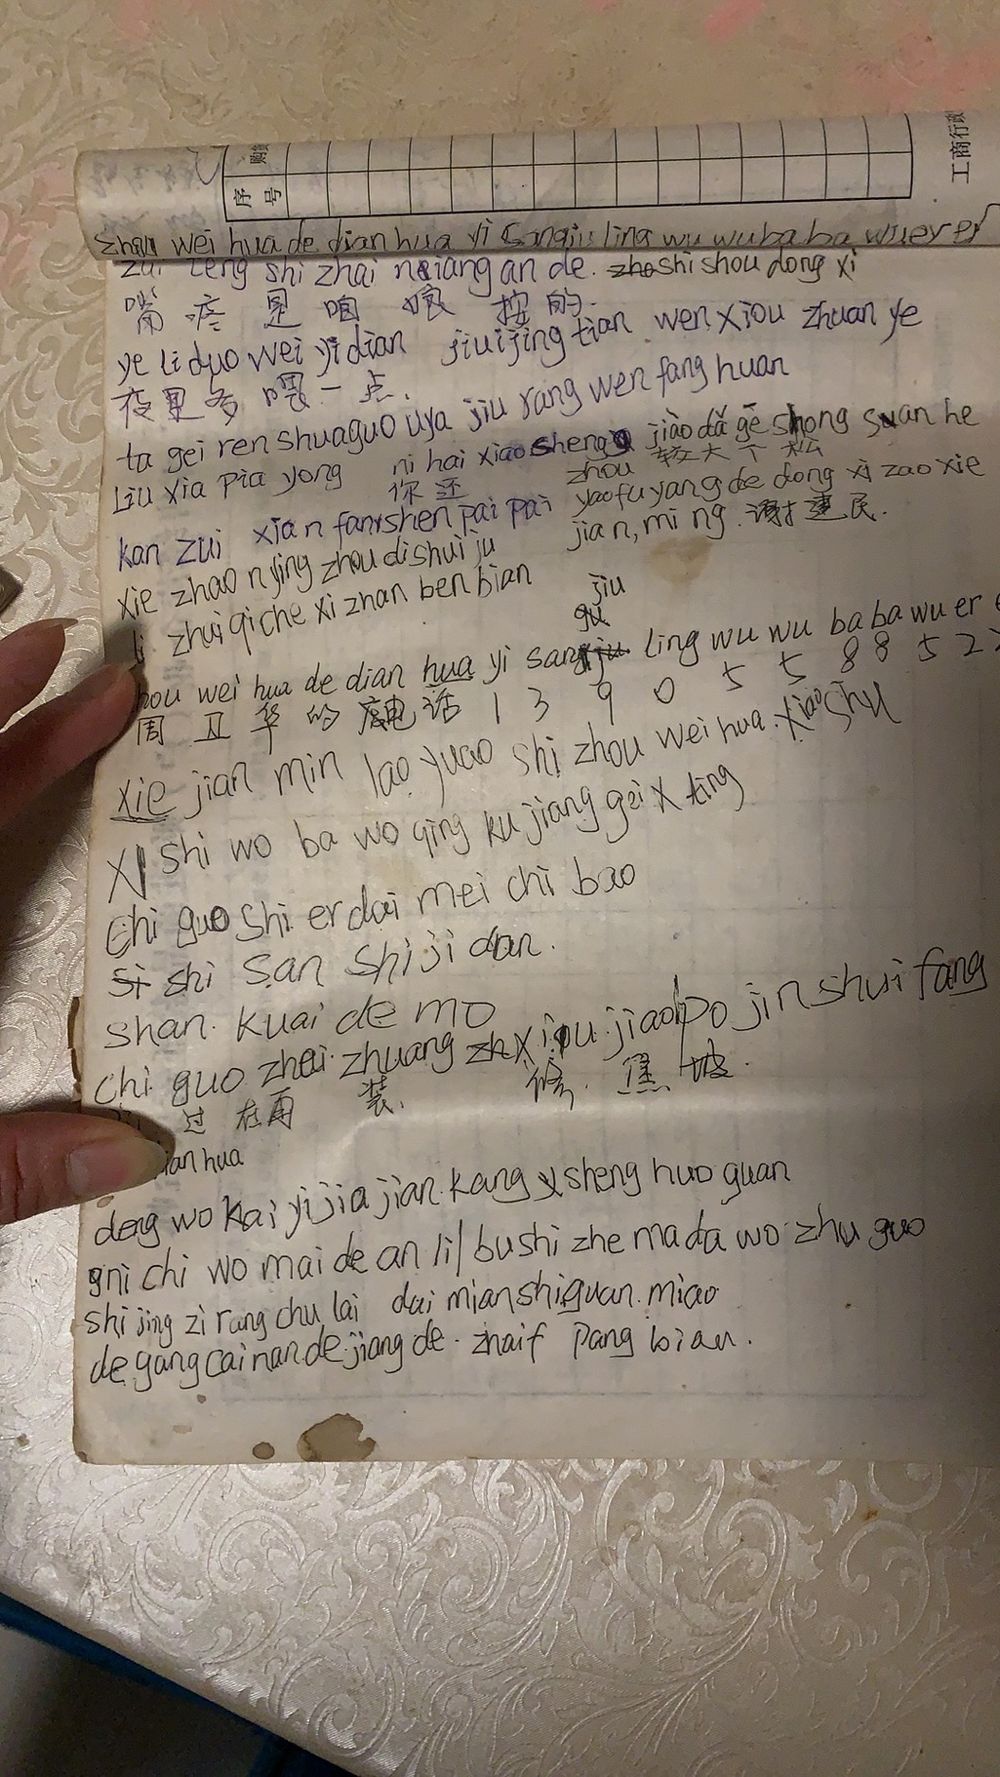 序号
购
工商行政
zhou wei hua de dian hua yi sanqiu ling wu wu ba ba wu er er
teng shi zhai neiang an de. shi shou dong xi
疼 是 咱 娘 按 的.
ye li duo wei yi dian jiu jing tian wen xiou zhuan ye
夜里多喂一点.
ta gei ren shuaguo uya jiu rang wen fang huan
liu xia pia yong ni hai xiao sheng jiào dǎ gè shong suan he
你还 较大个松
kan zui xian fan shen pai pai zhou yao fu yang de dong xi zao xie
xie zhao n ying zhou di shui ju jian, mi ng. 谢建民.
li zhui qi che xi zhan ben bian jiu
hou wei hua de dian hua yi san ling wu wu ba ba wu er
周卫华的电话 1 3 9 0 5 5 8 8 5 2 2
xie jian min lao yuao shi zhou wei hua. xiao shu
xi shi wo ba wo qing ku jiang gei x ting
chi guo shi er dai mei chi bao
si shi san shi ji dan.
shan. kuai de mo
chi guo zhai zhuang zh xiou. jiao po jin shui fang
过 在再 装. 修. 焦 坡.
ian hua
deng wo kai yi jia jian. kang x sheng huo guan
gni chi wo mai de an li/ bu shi zhe ma da wo zhu guo
shi jing zi rang chu lai dai mian shi guan. miao
de gang cai nan de jiang de. zhaif pang bian.